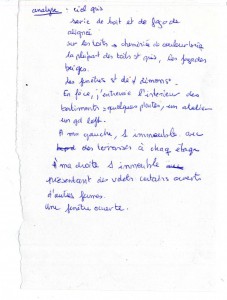 analyse : ciel gris
serie de toit et de façade
alignée
sur les toits → cheminée de couleur brique
la plupart des toits st gris, les façades
beiges.
les fenêtres st de ≠ dimens°.
En face, j'entrevoie l'intérieur des
batiments : quelques plantes, un atelier
un qd loft.
A ma gauche, 1 immeuble avec
des terrasses à chaq étage
A ma droite 1 immeuble
présentant des volets certains ouverts
d'autres fermés.
une fenêtre ouverte.